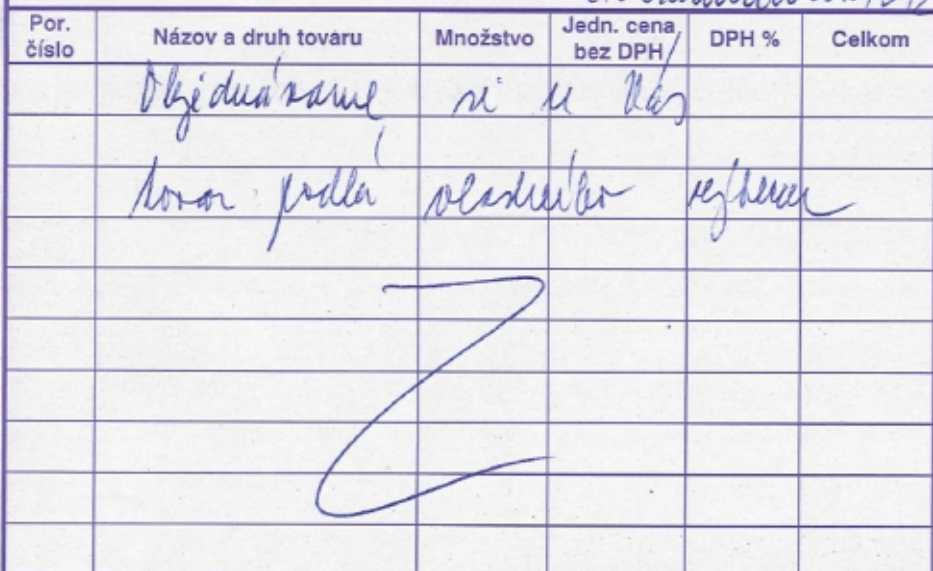 Por. číslo Názov a druh tovaru Množstvo Jedn. cena bez DPH DPH % Celkom
Objednávame si u Vás
tovar podľa vlastného výberu